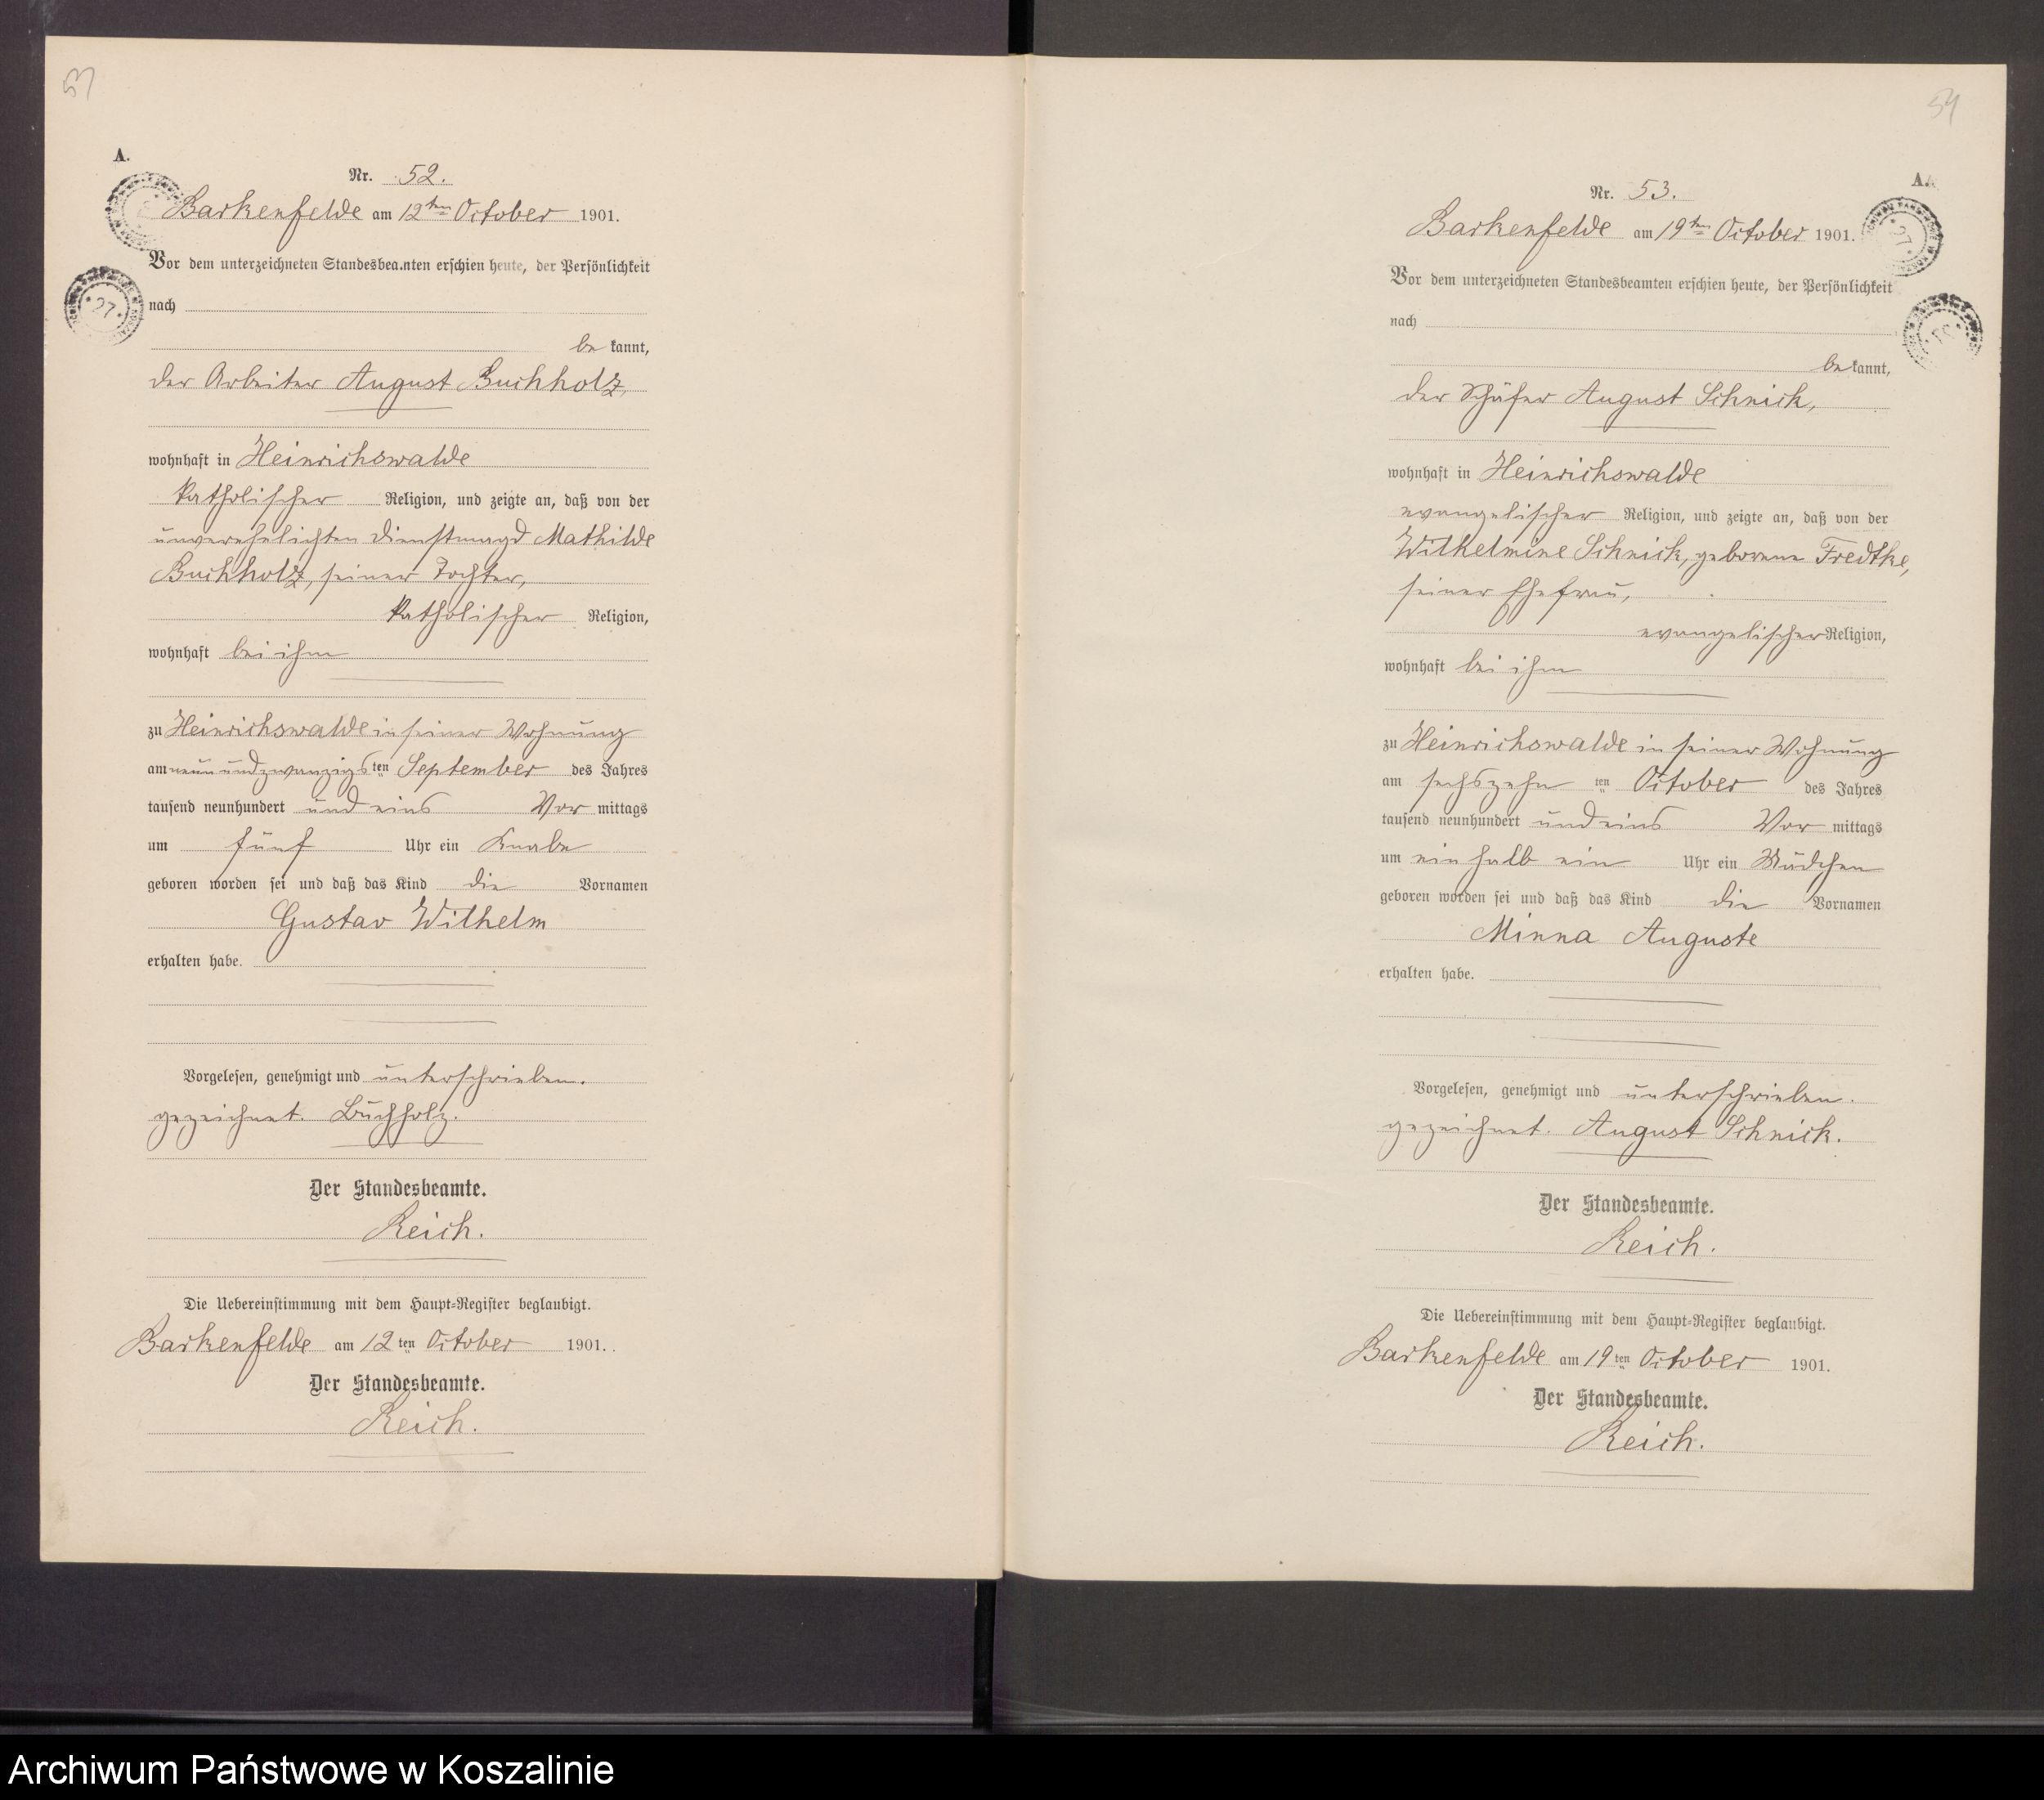 53
A.
Nr. 52.
Barkenfelde am 12ten October 1901.
Vor dem unterzeichneten Standesbeamten erschien heute, der Persönlichkeit
nach
be kannt,
der Arbeiter August Buchholz,
wohnhaft in Heinrichswalde
katholischer Religion, und zeigte an, daß von der
unverehelichten Dienstmagd Mathilde
Buchholz, seiner Tochter,
katholischer Religion,
wohnhaft bei ihm
zu Heinrichswalde in seiner Wohnung
am neunundzwanzigsten September des Jahres
tausend neunhundert und eins Vor mittags
um fünf Uhr ein Knabe
geboren worden sei und daß das Kind die Vornamen
Gustav Wilhelm
erhalten habe.
Vorgelesen, genehmigt und unterschrieben.
gezeichnet. Buchholz.
Der Standesbeamte.
Reich.
Die Uebereinstimmung mit dem Haupt-Register beglaubigt.
Barkenfelde am 12ten October 1901.
Der Standesbeamte.
Reich.
54
A.
Nr. 53.
Barkenfelde am 19ten October 1901.
Vor dem unterzeichneten Standesbeamten erschien heute, der Persönlichkeit
nach
be kannt,
der Schäfer August Schnick,
wohnhaft in Heinrichswalde
evangelischer Religion, und zeigte an, daß von der
Wilhelmine Schnick, geborene Fredtke,
seiner Ehefrau,
evangelischer Religion,
wohnhaft bei ihm
zu Heinrichswalde in seiner Wohnung
am sechszehn ten October des Jahres
tausend neunhundert und eins Vor mittags
um ein halb ein Uhr ein Mädchen
geboren worden sei und daß das Kind die Vornamen
Minna Auguste
erhalten habe.
Vorgelesen, genehmigt und unterschrieben.
gezeichnet. August Schnick.
Der Standesbeamte.
Reich.
Die Uebereinstimmung mit dem Haupt-Register beglaubigt.
Barkenfelde am 19ten October 1901.
Der Standesbeamte.
Reich.
Archiwum Państwowe w Koszalinie